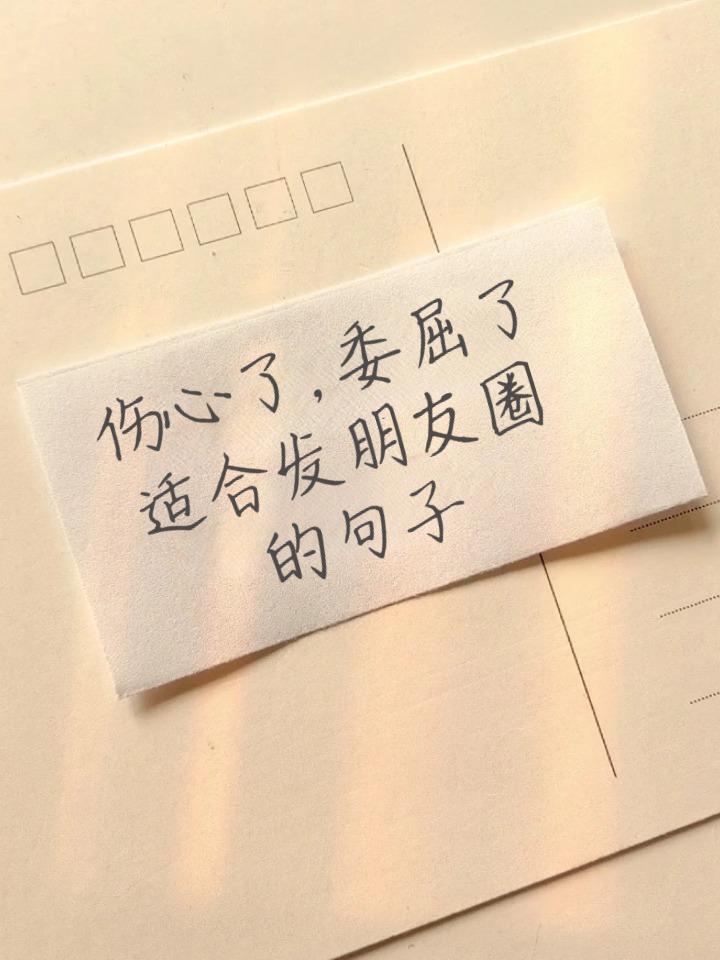 伤心了,委屈了
适合发朋友圈
的句子